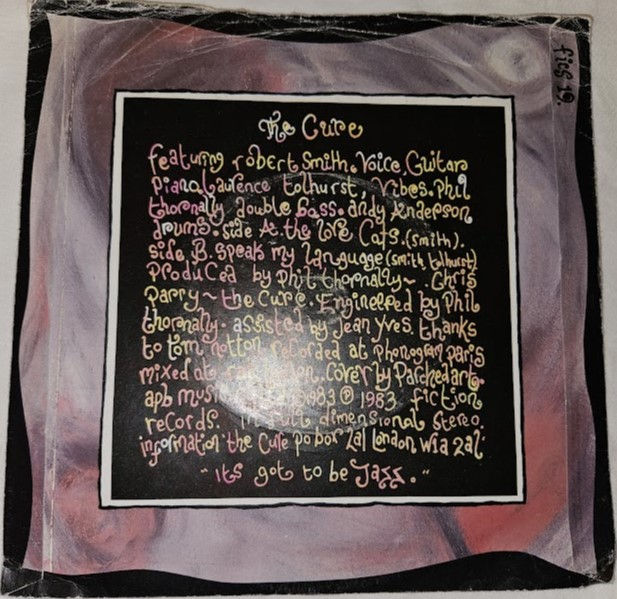 fics 19.
The Cure
featuring robert Smith. Voice, Guitar
piano, Laurence tolhurst, Vibes. Phil
thornally double bass. andy Anderson
drums. side A. the love Cats. (smith).
side B. speak my language (smith tolhurst)
produced by phil thornally~. Chris
Parry ~ the Cure. Engineered by Phil
thornally. assisted by Jean Yves. thanks
to tom notton recorded at phonogram paris
mixed at. Cover by Parchedart.
apb music 1983 ℗ 1983 fiction
records. dimensional Stereo
information the Cure po box 2al london w1a 2al
"its got to be Jazz."